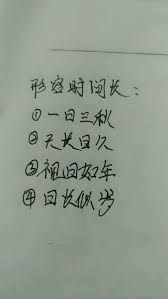 形容时间长：
①一日三秋
②天长日久
③视日如年
④日长似岁